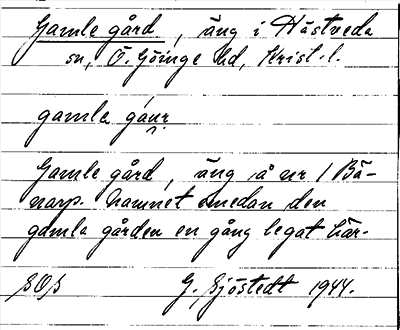 Gamle gård, äng i Hästveda
sn, Ö. Göinge hd, Krist. l.
gamla gáur
Gamle gård, äng å nr 1 Bä-
narp. Namnet emedan den
gamla gården en gång legat här.
SOS G. Sjöstedt 1944.